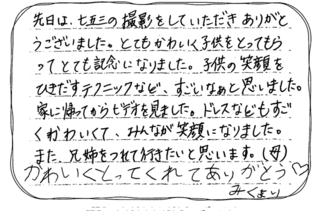 先日は、七五三の撮影をしていただきありがと
うございました。とてもかわいく子供をとってもら
ってとても記念になりました。子供の笑顔を
ひきだすテクニックなど、すごいなぁと思いました。
家に帰ってからビデオを見ました。ドレスなどもすご
くかわいくて、みんなが笑顔になりました。
また、兄姉をつれて行きたいと思います。(母)
かわいくとってくれてありがとう♡
みくより